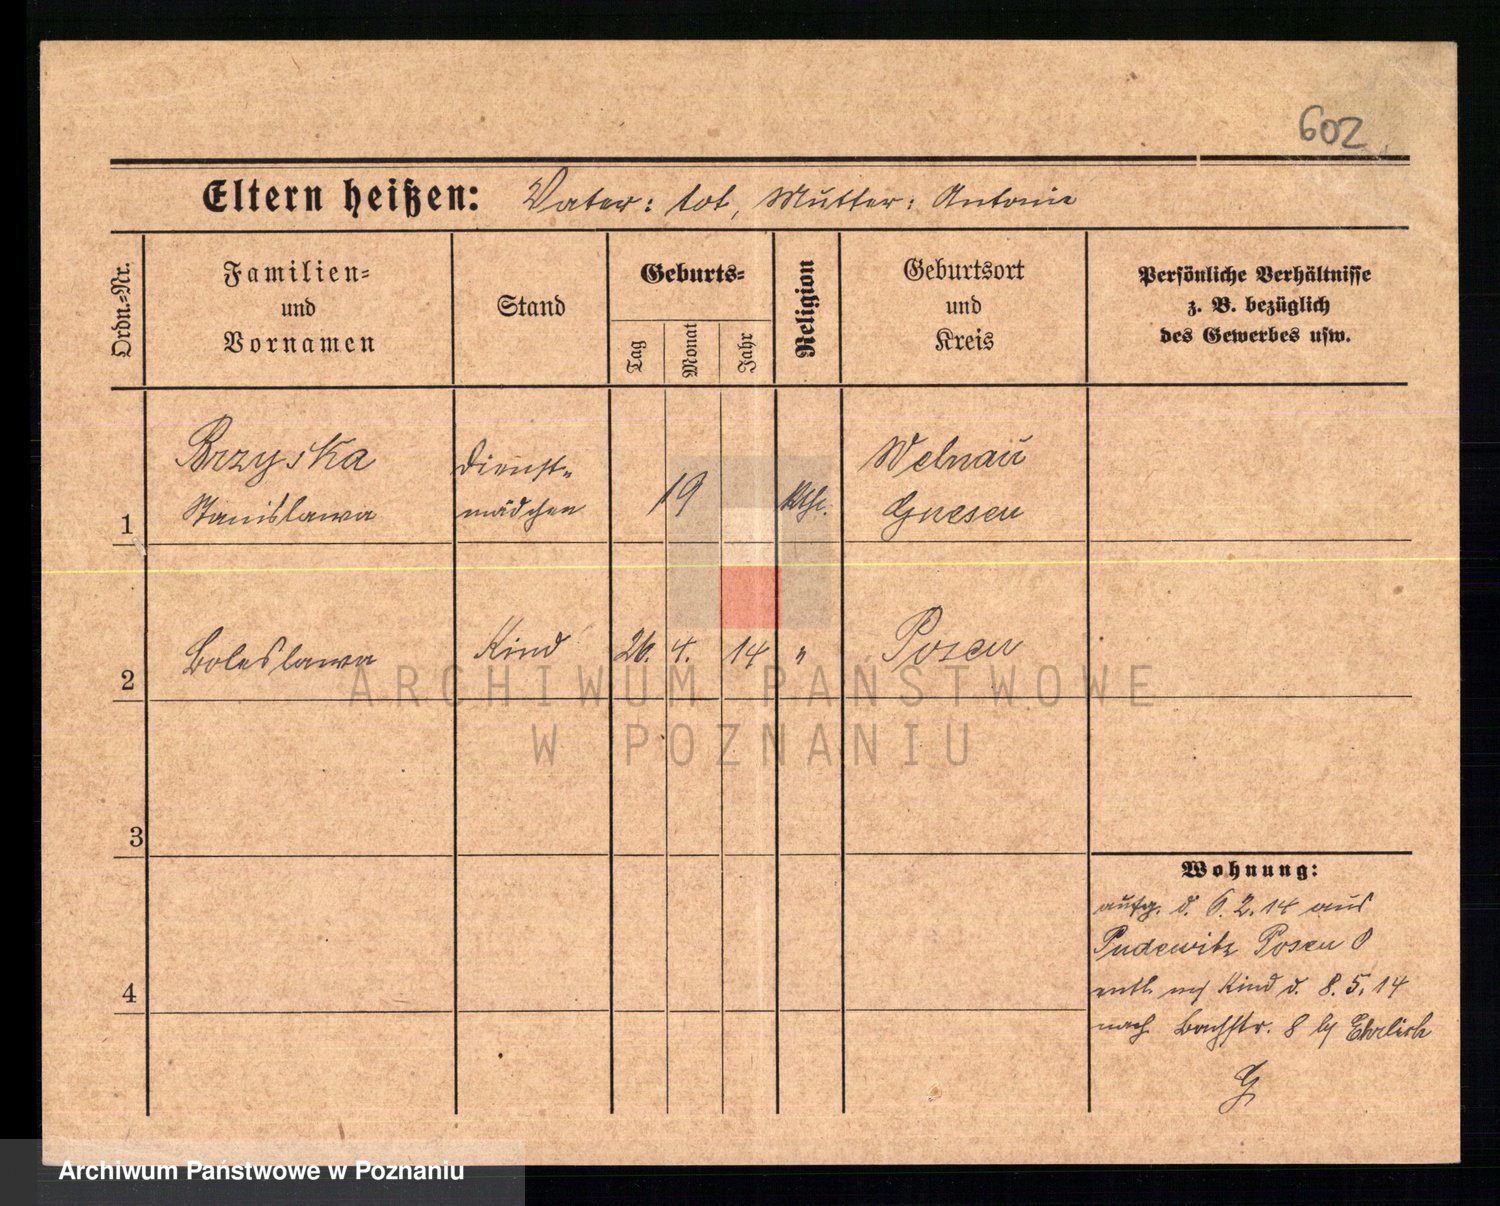 602
Eltern heißen: Vater: tot, Mutter: Antonie
Ordn.=Nr.
Familien=
und
Vornamen
Stand
Geburts=
Tag
Monat
Jahr
Religion
Geburtsort
und
Kreis
Persönliche Verhältnisse
z. B. bezüglich
des Gewerbes usw.
1
Brzyska
Stanislawa
Dienst-
mädchen
19
kth.
Welnau
Gnesen
2
Boleslawa
Kind
26. 4. 14
"
Posen
ARCHIWUM PAŃSTWOWE
W POZNANIU
3
4
Wohnung:
aufg. d. 6. 2. 14 aus
Pudewitz Posen O
entl. Kind d. 8. 5. 14
nach Bachstr. 8 Ehrlich
G
Archiwum Państwowe w Poznaniu